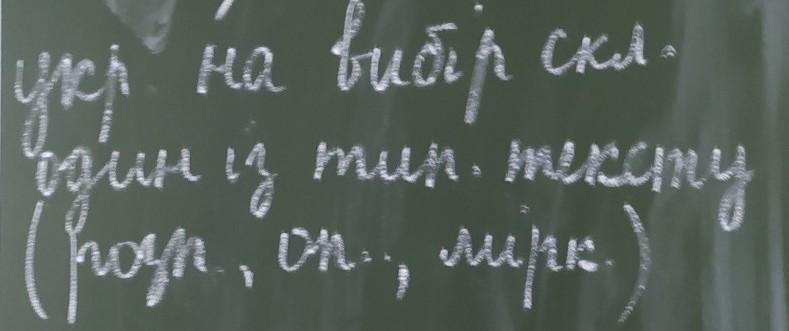 укр на вибір скл.
один із тип. тексту
(розр., оп., мірк.)